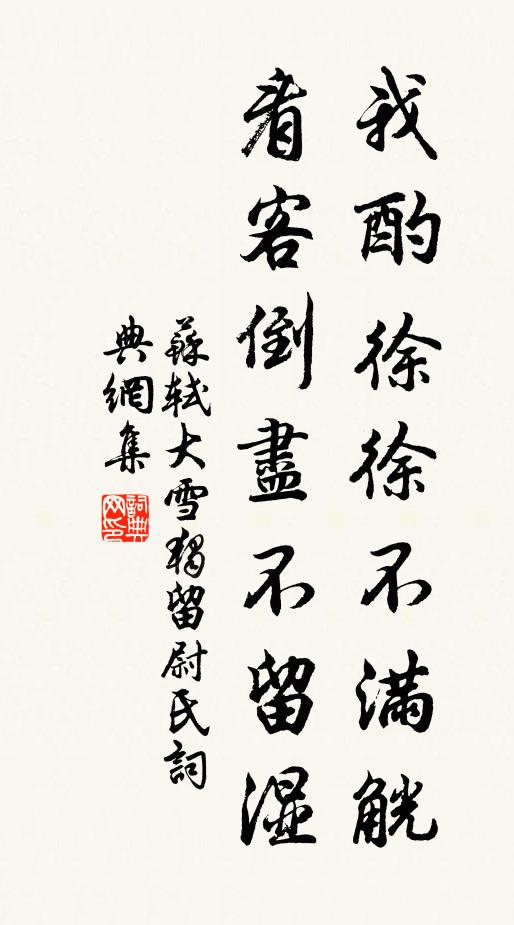 我酌徐徐不滿觥
看客倒盡不留湿
蘇軾大雪獨留尉氏詞
典網集
詞典
网印